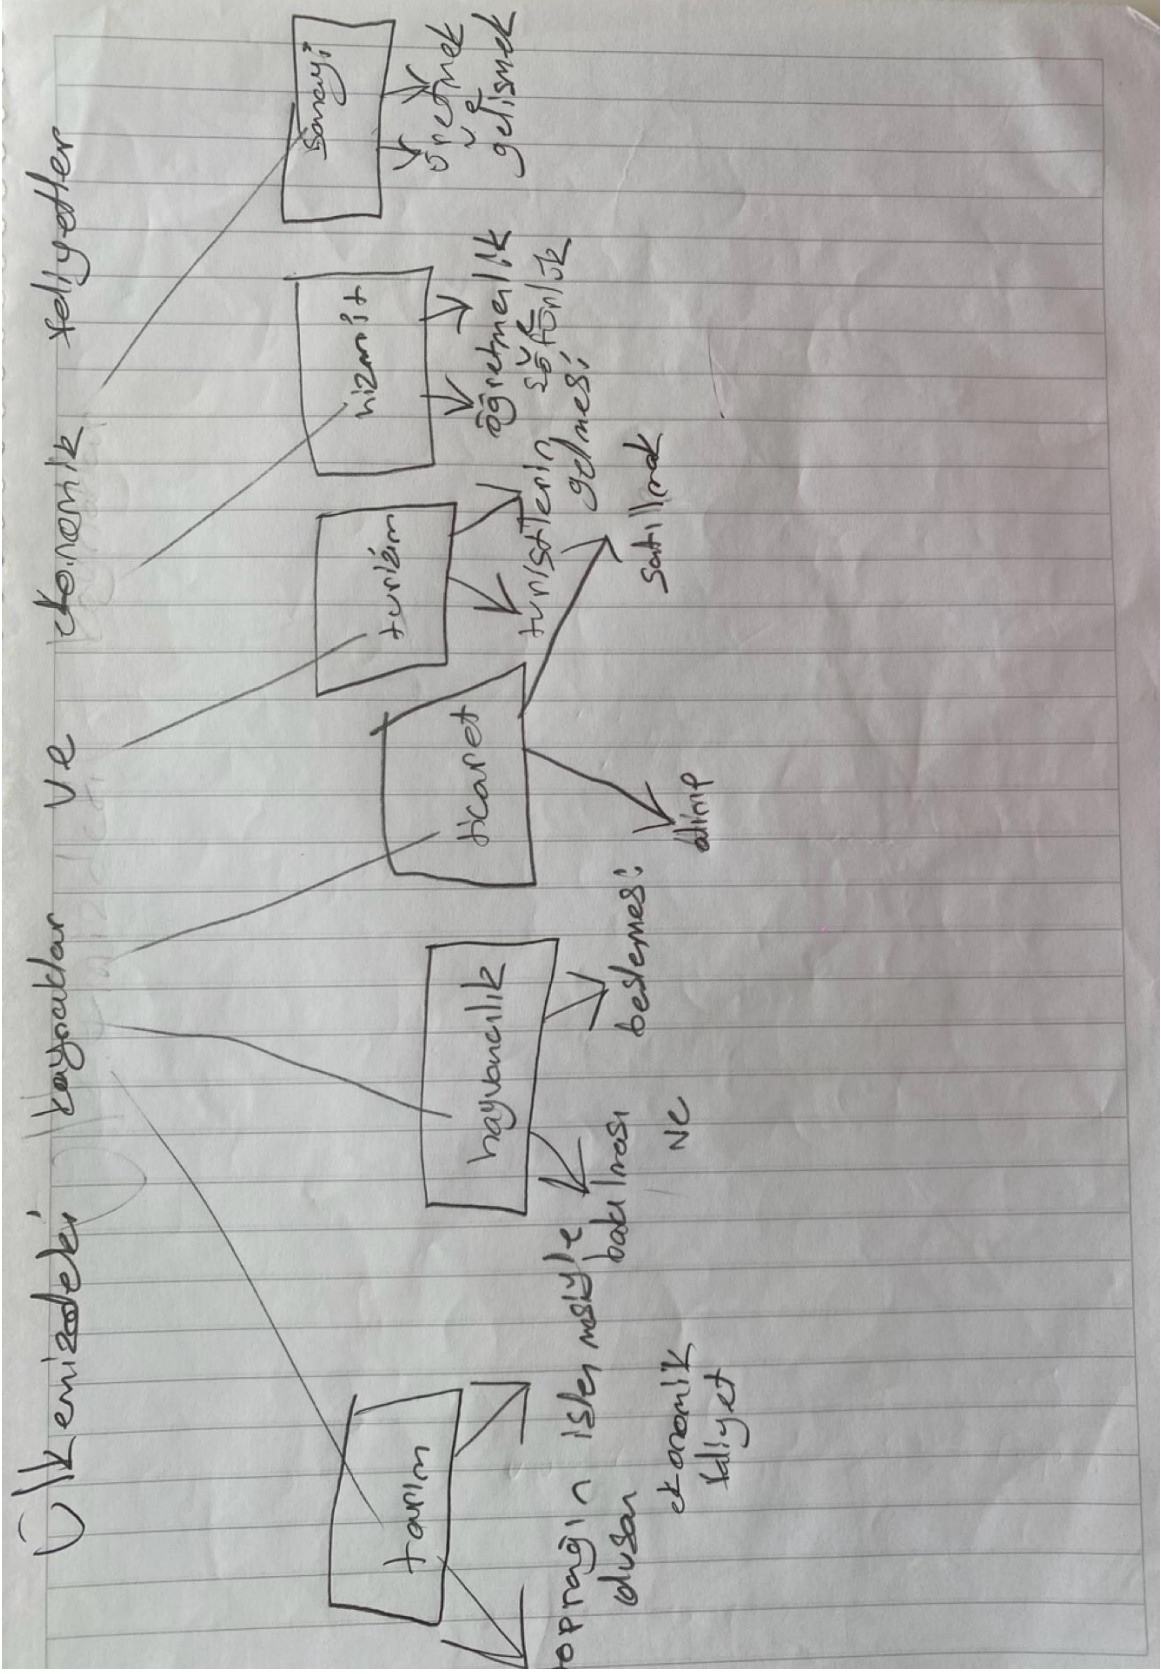 Ülkemizdeki kaynaklar ve ekonomik faliyetler
tarım
toprağın islenmesiyle
olusan
ekonomik
faliyet
hayvancılık
bakılması
ve
beslemesi
ticaret
alınıp
satıllmak
turizim
turistlerin
gelmesi
hizmit
öğretmenlik
ve
söförlük
sanayi
üretmek
ve
gelismek